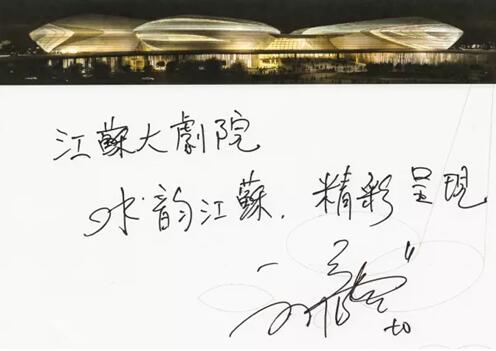 江蘇大劇院
水韵江蘇．精彩呈現